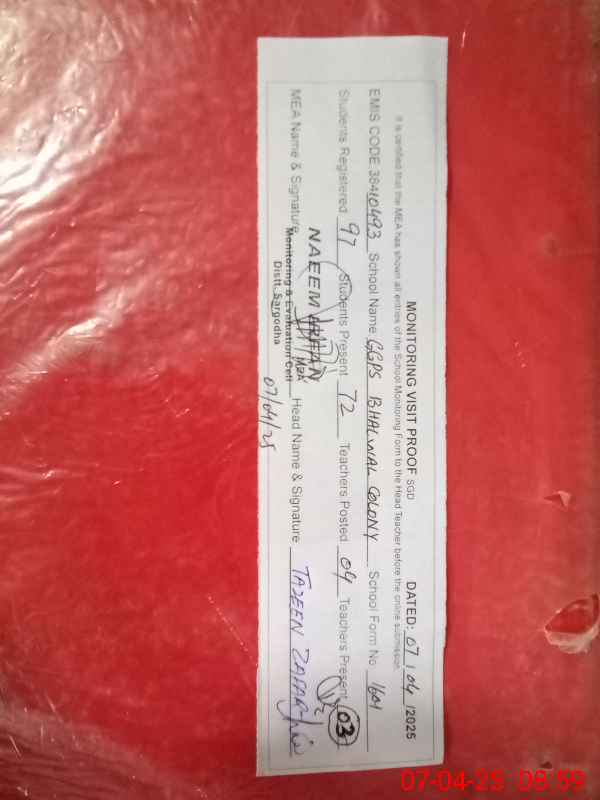 MONITORING VISIT PROOF SGD DATED: 07/04/2025
It is certified that the MEA has shown all entries of the School Monitoring Form to the Head Teacher before the online submission.
EMIS CODE 38410493 School Name GGPS BHALWAL COLONY School Form No 1601
Students Registered 97 Students Present 72 Teachers Posted 04 Teachers Present 03
MEA Name & Signature NAEEM IRFAN Head Name & Signature TAZEEN ZAFAR
MEA
Monitoring & Evaluation Cell
Distt. Sargodha
07/04/25
07-04-25 08:59